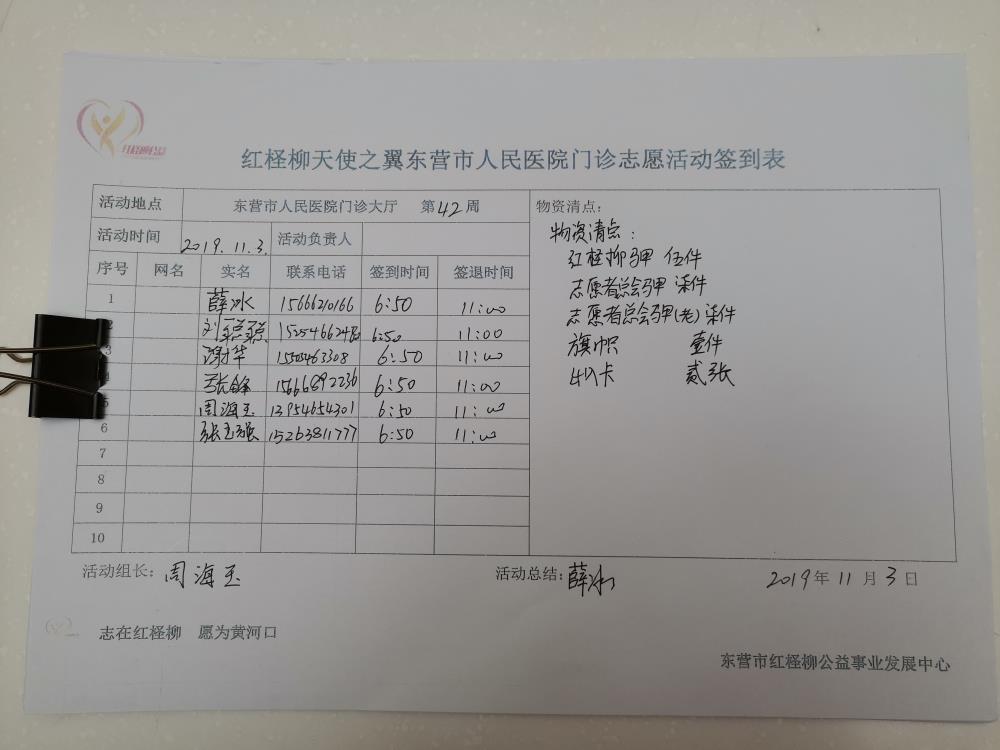 红柽柳公益
红柽柳天使之翼东营市人民医院门诊志愿活动签到表
活动地点 东营市人民医院门诊大厅 第42周
活动时间 2019.11.3. 活动负责人
序号 网名 实名 联系电话 签到时间 签退时间
1 薛冰 15666210166 6:50 11:00
2 刘琼琼 6:50 11:00
3 6:50 11:00
张锋 15666892236 6:50 11:00
5 周海玉 13954654301 6:50 11:00
6 张玉强 15263811777 6:50 11:00
7
8
9
10
物资清点:
物资清点:
红柽柳马甲 伍件
志愿者总会马甲 柒件
志愿者总会马甲(老) 柒件
旗帜 壹件
贰张
活动组长: 周海玉
活动总结: 薛冰
2019年11月3日
志在红柽柳 愿为黄河口
东营市红柽柳公益事业发展中心